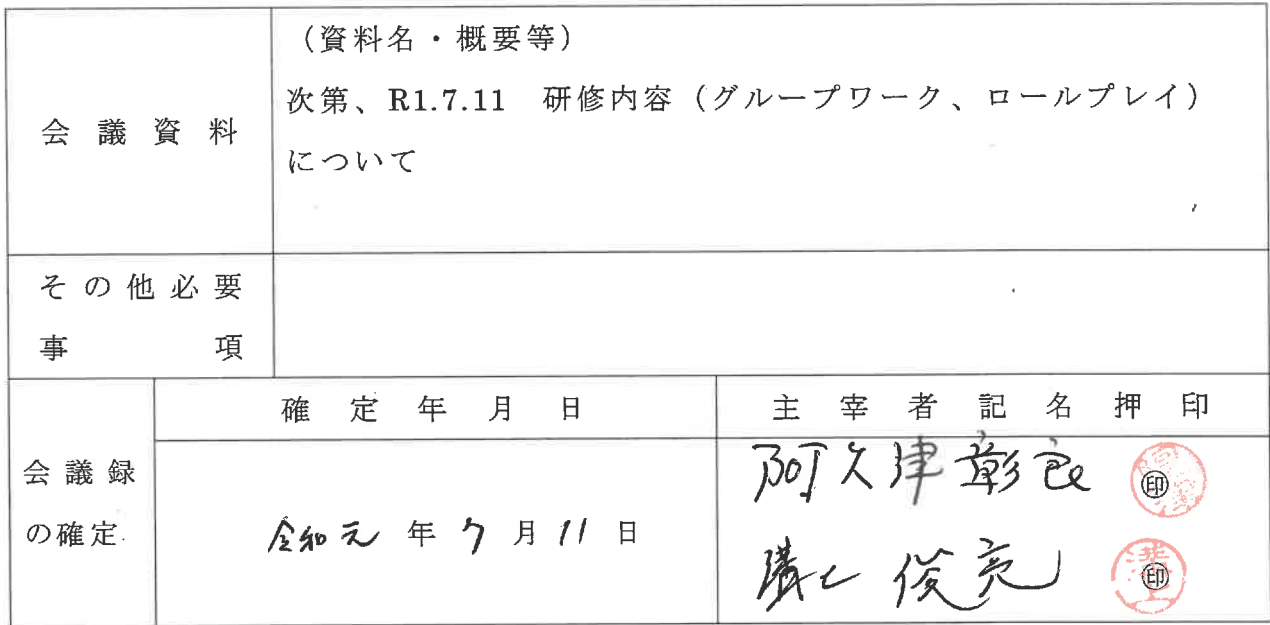 会議資料
（資料名・概要等）
次第、R1.7.11　研修内容（グループワーク、ロールプレイ）
について
その他必要
事項
会議録
の確定
確定年月日
令和元年7月11日
主宰者記名押印
阿久津彰良 ㊞
溝上 俊亮 ㊞